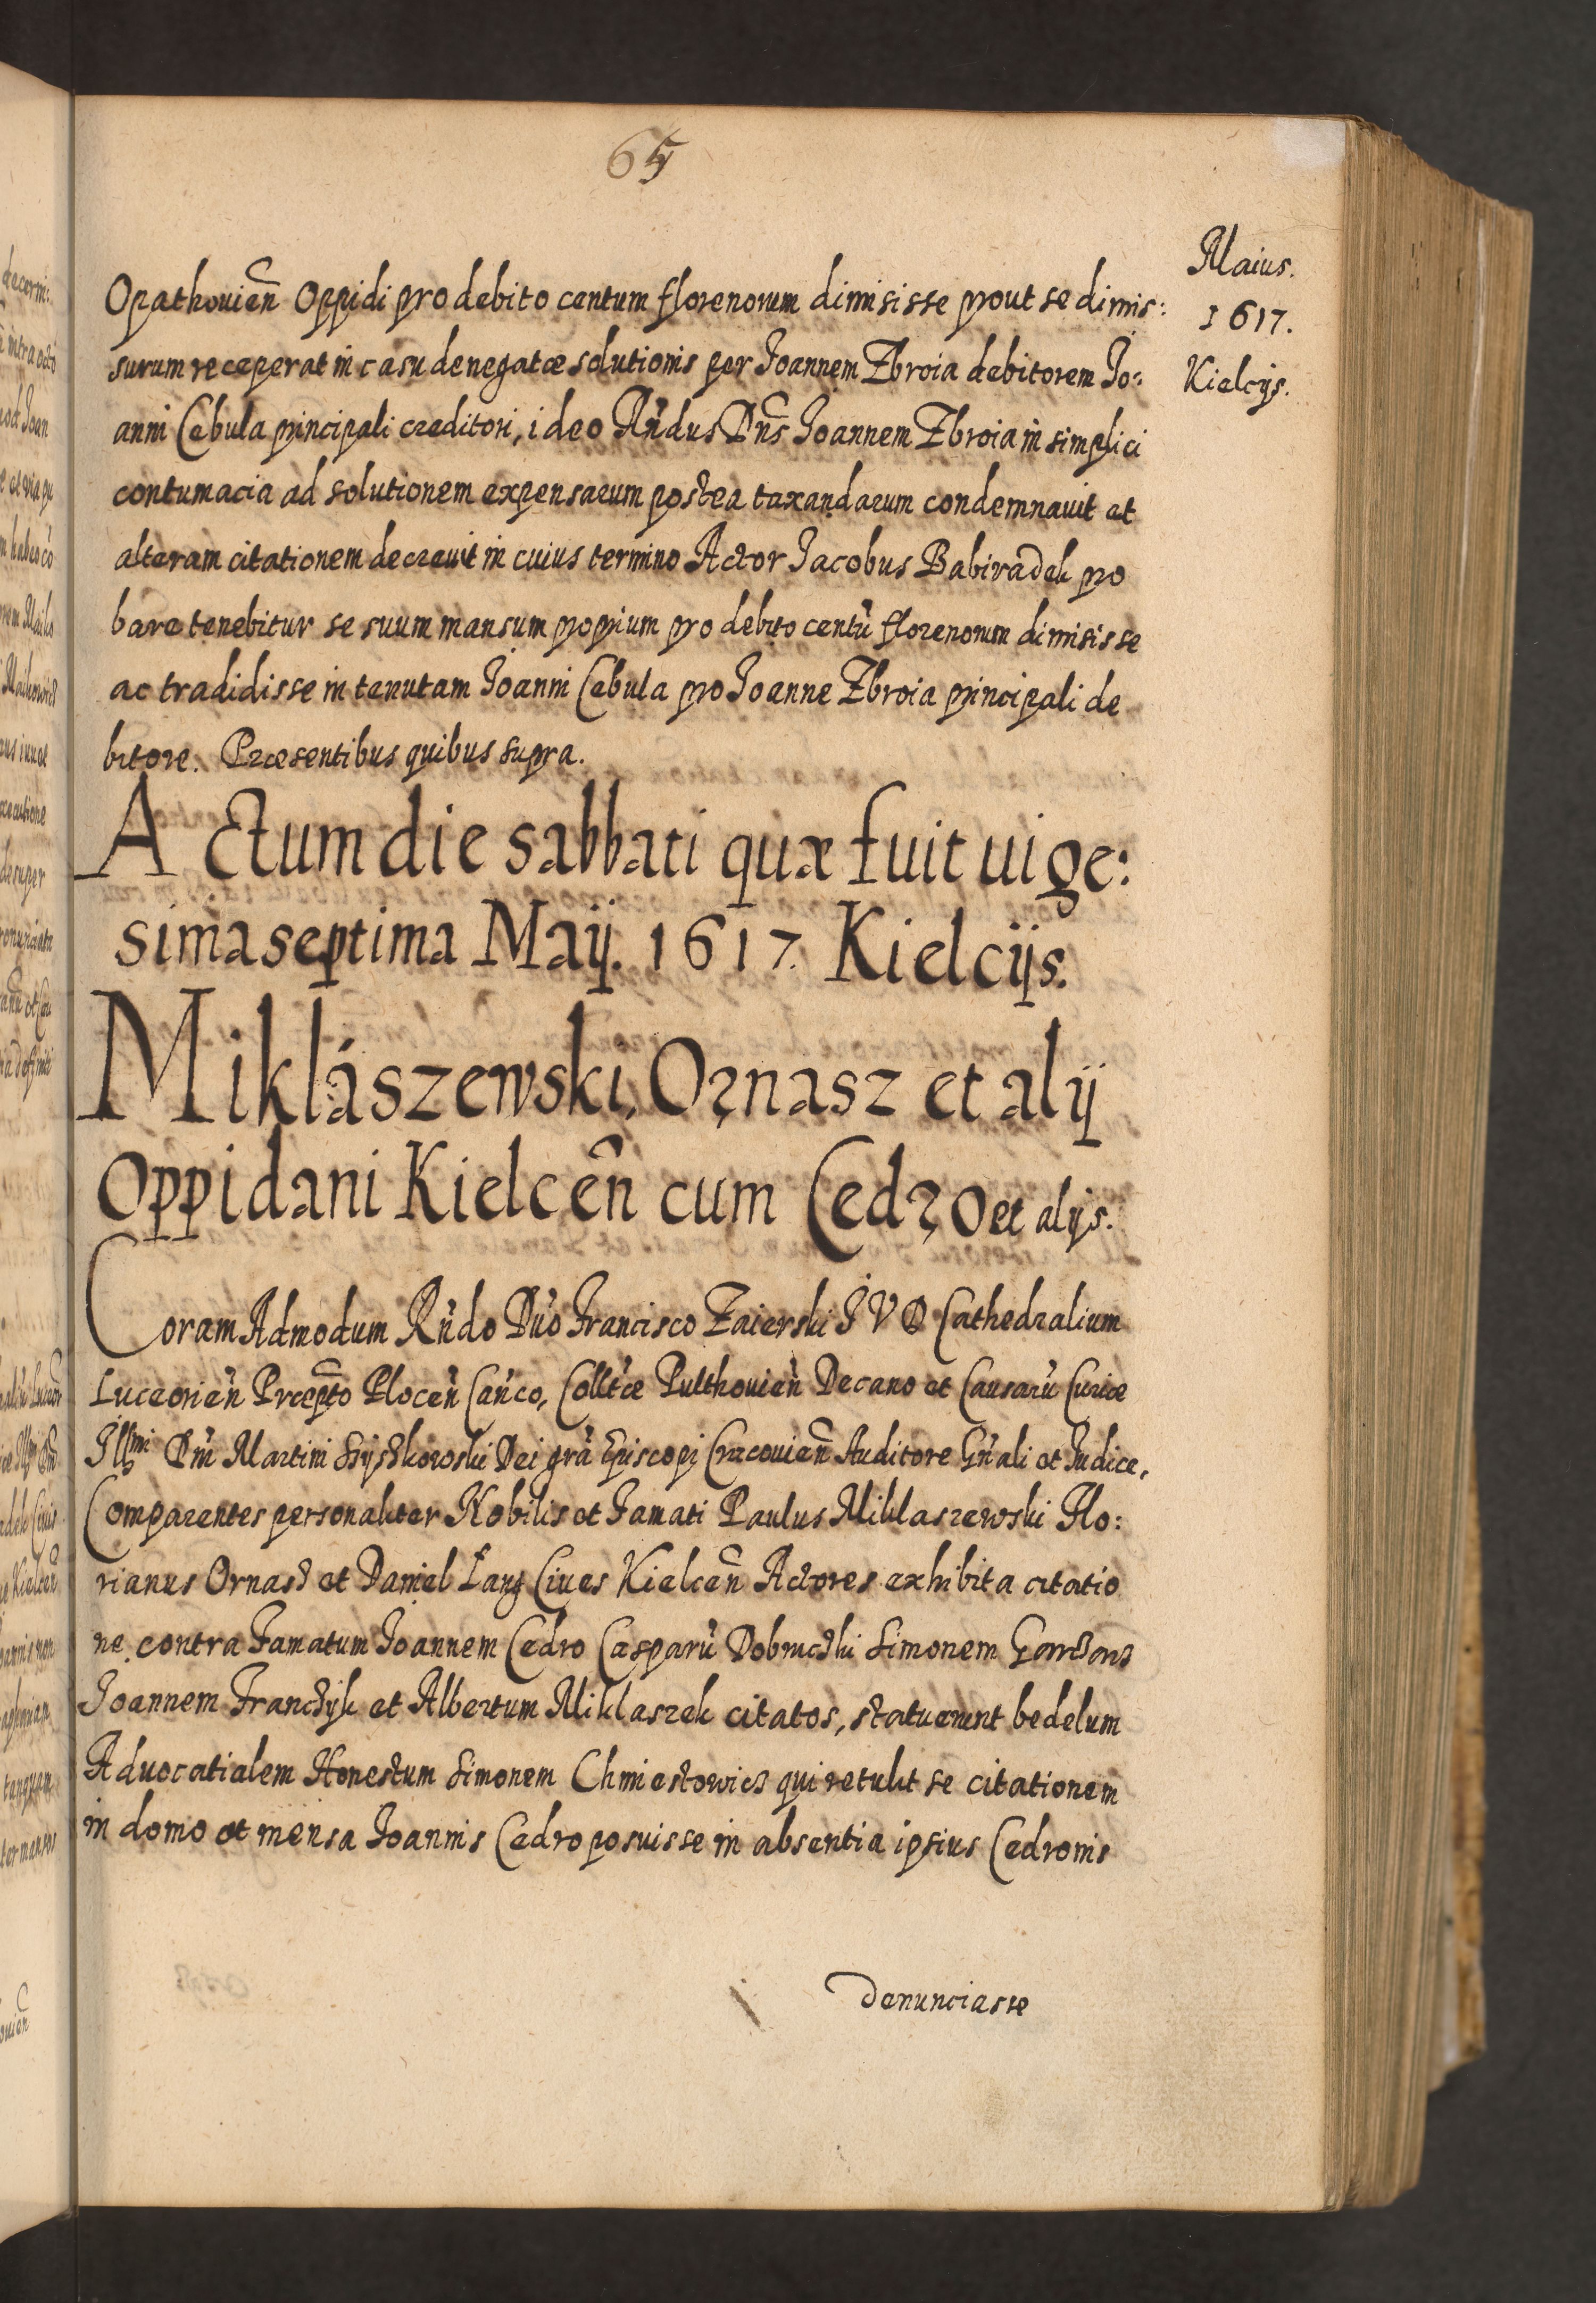 65
Maius.
1617.
Kielcijs.
Opathouien̄ Oppidi pro debito centum florenorum dimisisse prout se dimis:
surum receperat in casu denegatæ solutionis per Joannem Zbroia debitorem Jo:
anni Cebula principali creditori, ideo Rn̄dus Dn̄s Joannem Zbroia in simplici
contumacia ad solutionem expensarum postea taxandarum condemnauit et
alteram citationem decreuit in cuius termino Actor Jacobus Babiradek pro
bare tenebitur se suum mansum proprium pro debito centū florenorum dimisisse
ac tradidisse in tenutam Joanni Cebula pro Joanne Zbroia principali de
bitore. Præsentibus quibus supra.
Actum die sabbati quæ fuit uige:
sima septima Maij. 1617. Kielcijs.
Miklászewski, Ornasz et alij
Oppidani Kielcen̄ cum Cedro et alijs.
Coram Admodum Rn̄do Dn̄o Francisco Zaierski J V D Cathedralium
Luceorien̄ Præpt̄o Plocen̄ Can̄co, Collt̄æ Pulthouien̄ Decano et Causarū Curiæ
Illmi Dn̄i Martini Szyszkowski Dei gr̄a Episcopi Cracouien̄ Auditore Gn̄ali et Judice,
Comparentes personaliter Nobilis et Famati Paulus Miklaszewski Flo:
rianus Ornasz et Daniel Lang Ciues Kielcen̄ Actores exhibita citatio
ne contra Famatum Joannem Cedro Casparū Dobruczki Simonem
Joannem Franczyk et Albertum Miklaszek citatos, statuerunt bedelum
Aduocatialem Honestum Simonem Chmiestowicz qui retulit se citationem
in domo et mensa Joannis Cedro posuisse in absentia ipsius Cedronis
denunciasse